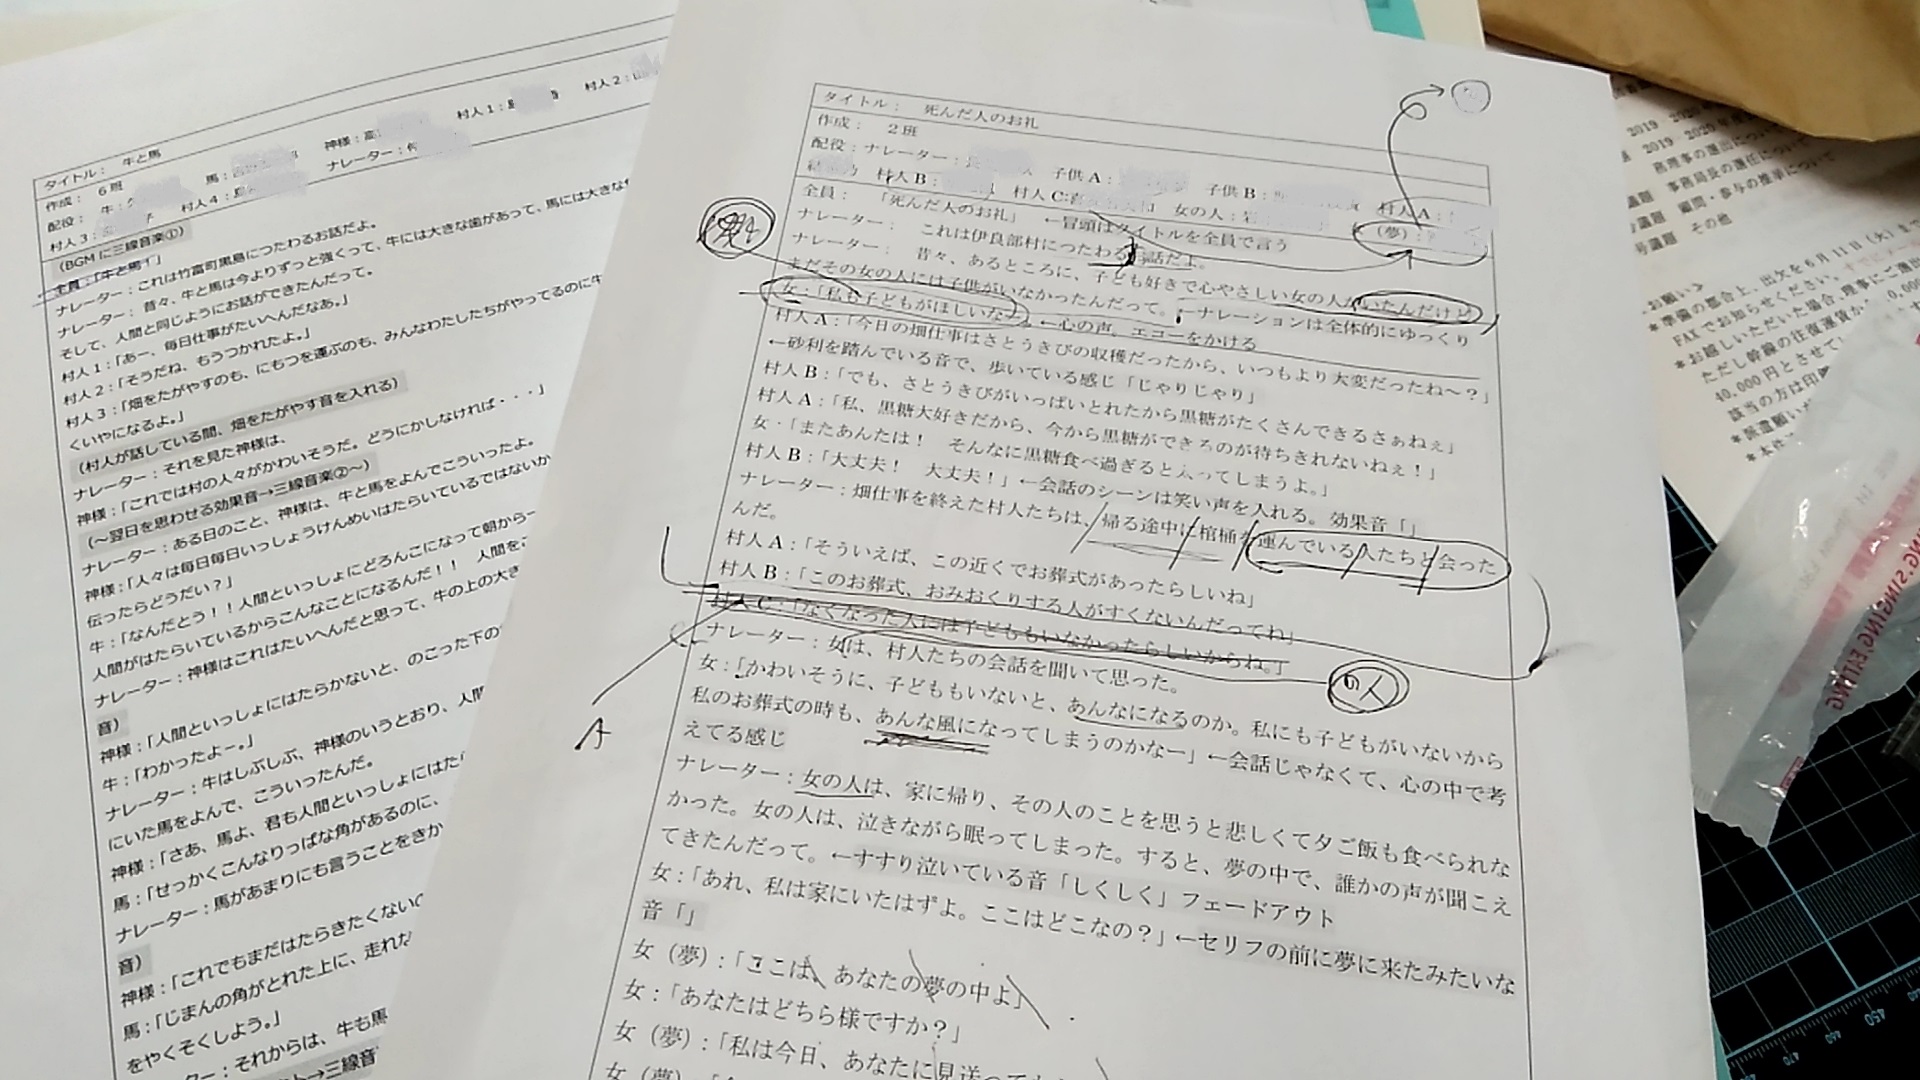 タイトル： 牛と馬
作成： 6班
配役： 牛： 馬： 神様： 村人1： 村人2：
村人3： 村人4： ナレーター：
（BGMに三線音楽①）
全員：「牛と馬！」
ナレーター：これは竹富町黒島につたわるお話だよ。
ナレーター：昔々、牛と馬は今よりずっと強くって、牛には大きな歯があって、馬には大きな
そして、人間と同じようにお話ができたんだって。
村人1：「あー、毎日仕事がたいへんだなあ。」
村人2：「そうだね、もうつかれたよ。」
村人3：「畑をたがやすのも、にもつを運ぶのも、みんなわたしたちがやってるのに牛
くいやになるよ。」
（村人が話している間、畑をたがやす音を入れる）
ナレーター：それを見た神様は、
神様：「これでは村の人々がかわいそうだ。どうにかしなければ・・・」
（～翌日を思わせる効果音→三線音楽②～）
ナレーター：ある日のこと、神様は、牛と馬をよんでこういったよ。
神様：「人々は毎日毎日いっしょうけんめいはたらいているではないか
伝ったらどうだい？」
牛：「なんだとう！！人間といっしょにどろんこになって朝から
人間がはたらいているからこんなことになるんだ！！ 人間を
ナレーター：神様はこれはたいへんだと思って、牛の上の大き
音）
神様：「人間といっしょにはたらかないと、のこった下の
牛：「わかったよー。」
ナレーター：牛はしぶしぶ、神様のいうとおり、人間
にいた馬をよんで、こういったんだ。
神様：「さあ、馬よ、君も人間といっしょにはた
馬：「せっかくこんなりっぱな角があるのに、
ナレーター：馬があまりにも言うことをきか
音）
神様：「これでもまだはたらきたくない
馬：「じまんの角がとれた上に、走れな
をやくそくしよう。」
ター：それからは、牛も馬
→三線音
タイトル： 死んだ人のお礼
作成： 2班
配役：ナレーター： 子供A： 子供B： 村人A：
村人B： 村人C： 女の人： （夢）：
全員： 「死んだ人のお礼」 ←冒頭はタイトルを全員で言う
ナレーター： これは伊良部村につたわる話だよ。
ナレーター： 昔々、あるところに、子ども好きで心やさしい女の人がいたんだけど
まだその女の人には子供がいなかったんだって。←ナレーションは全体的にゆっくり
女：「私も子どもがほしいな」←心の声、エコーをかける
村人A：「今日の畑仕事はさとうきびの収穫だったから、いつもより大変だったね～？」
←砂利を踏んでいる音で、歩いている感じ「じゃりじゃり」
村人B：「でも、さとうきびがいっぱいとれたから黒糖がたくさんできるさぁねぇ」
村人A：「私、黒糖大好きだから、今から黒糖ができるのが待ちきれないねぇ！」
女：「またあんたは！ そんなに黒糖食べ過ぎると太ってしまうよ。」
村人B：「大丈夫！ 大丈夫！」←会話のシーンは笑い声を入れる。効果音「」
ナレーター：畑仕事を終えた村人たちは、帰る途中に棺桶を運んでいる人たちと会った
んだ。
村人A：「そういえば、この近くでお葬式があったらしいね」
村人B：「このお葬式、おみおくりする人がすくないんだってね」
村人C：「なくなった人には子どももいなかったらしいからね。」
A
ナレーター：女は、村人たちの会話を聞いて思った。
の人
女：「かわいそうに、子どももいないと、あんなになるのか。私にも子どもがいないから
私のお葬式の時も、あんな風になってしまうのかなー」←会話じゃなくて、心の中で考
えてる感じ
ナレーター：女の人は、家に帰り、その人のことを思うと悲しくて夕ご飯も食べられな
かった。女の人は、泣きながら眠ってしまった。すると、夢の中で、誰かの声が聞こえ
てきたんだって。←すすり泣いている音「しくしく」フェードアウト
女：「あれ、私は家にいたはずよ。ここはどこなの？」←セリフの前に夢に来たみたいな
音「」
女（夢）：「ここは、あなたの夢の中よ」
女：「あなたはどちら様ですか？」
女（夢）：「私は今日、あなたに見送って
女（夢）：「
2019 2020年
務理事の選出について
事務局長の選任について
議題 顧問・参与の推挙について
号議題 その他
お願い＞
＊準備の都合上、出欠を6月11日（火）まで
FAXでお知らせください。
＊お越しいただいた場合、理事にご選出
ただし幹線の往復運賃か
40,000円とさせてい
該当の方は印
＊派遣願いが
＊本件
450
460
470